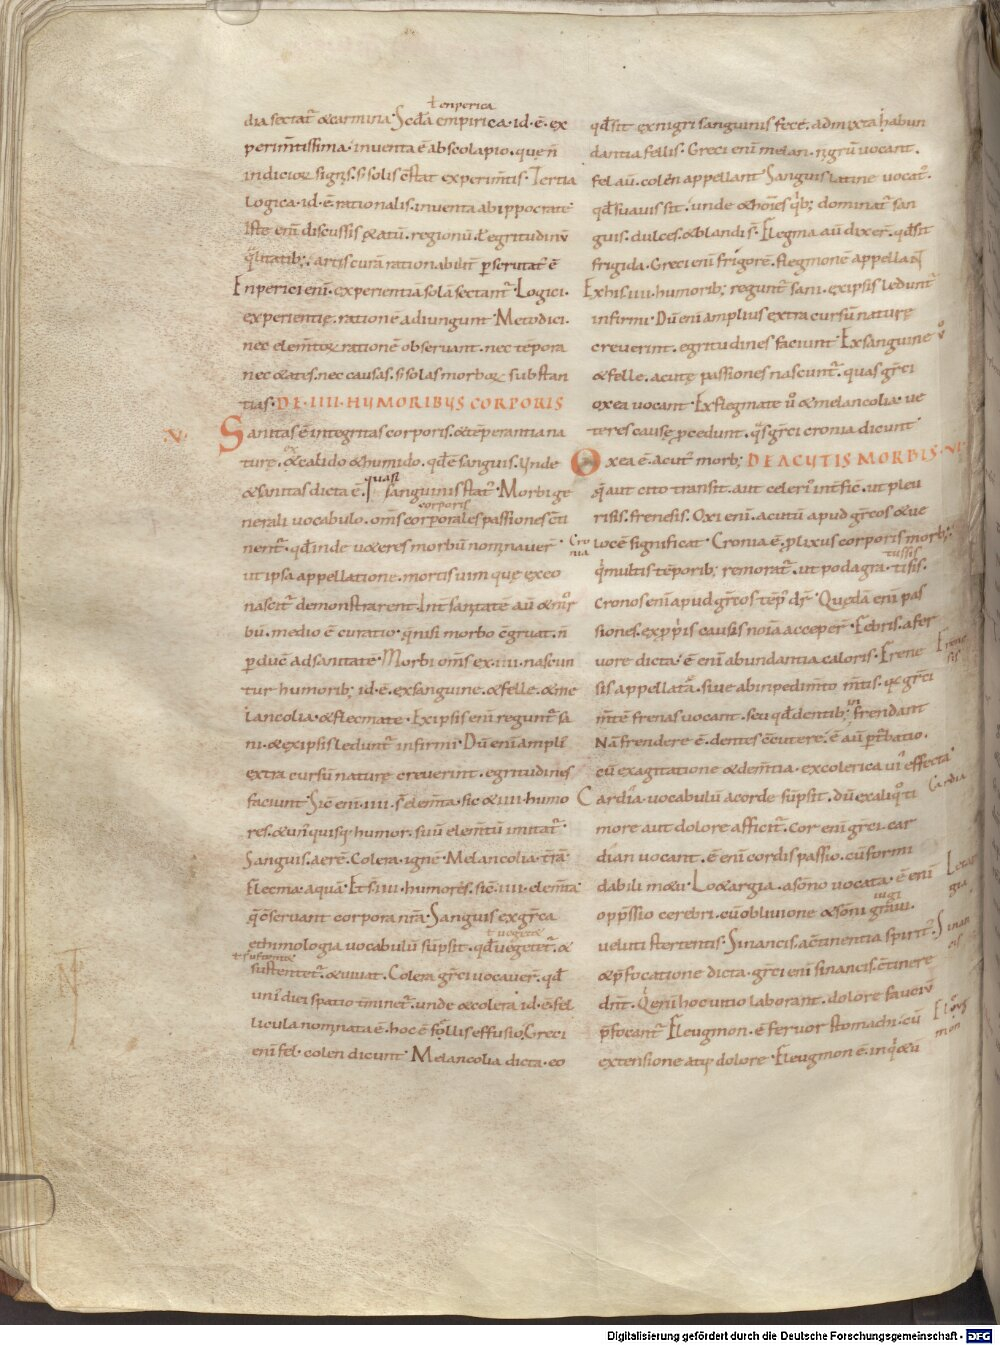 ł enperica
dia sectat᷑ & carmina· Sc̄da empirica· id· ē· ex
perim̄tissima· inuenta ē ab scolapio· que n̄
indicioꝝ signis· s; solis c̄stat experim̄tis· Tertia
logica· id· ē· rationalis· inuenta ab ippocrate·
Iste eni discussis &atū· regionū· ł egritudinū
q̄litatib;· artis curā rationabilit᷑ perscrutat᷑ ē
Enperici eni· experientiā solā sectant᷑· Logici·
experientię· rationē adiungunt· Metodici·
nec elem̄toꝝ rationē obseruant· nec tēpora
nec &ates· nec causas· s; solas morboꝝ substan
tias· DE· IIII· HUMORIBUS CORPORIS
V·
Sanitas ē integritas corporis· & tēperantia na
turę· ex calido & humido· qd̄ ē sanguis· Unde
& sanitas dicta ē· quasi sanguinis stat᷑· Morbi ge
corporis
nerali uocabulo· om̄s corporales passiones c̄ti
nent᷑· qd̄ inde u&eres morbū nominauer᷑
ut ipsa appellatione· mortis uim que ex eo
nascit᷑ demonstrarent· Int̄ sanitatē aū & mor
bū· medio ē curatio· q̄ nisi morbo c̄gruat· n̄
perduc̄ ad sanitatē· Morbi om̄s ex· IIII· nascun
tur humorib; id· ē· ex sanguine· & felle· & me
lancolia· & flecmate· Ex ipsis eni regunt᷑ sa
ni· & ex ipsis ledunt᷑ infirmi· Dū eni ampli᷑
extra cursū naturę creuerint· egritudines
faciunt· Sic eni· IIII· s̄ elem̄ta· sic & IIII· humo
res· & unusquisq; humor· suū elem̄tū imitat᷑·
Sanguis· aerē· Colera· ignē· Melancolia· t̄rā·
Flecma· aquā· Et s̄· IIII· humores· sic· IIII· elem̄ta
q̄ c̄seruant corpora n̄ra· Sanguis ex gr̄ca
ethimologia uocabulū sūpsit· qd̄ uegetet᷑· &
sustentet᷑· & uiuat· Colera gr̄ci uocauer᷑· qd̄
uni᷑ diei spatio t̄minet᷑· unde & colera· id· ē· fel
licula nominata ē· hoc ē follis effusio· Greci
eni fel· colen dicunt· Melancolia dicta· eo
qd̄ sit ex nigri sanguinis fece· admixta habun
dantia fellis· Greci eni melan· nigrū uocant·
fel aū· colen appellant· Sanguis latine uocat᷑·
qd̄ suauis sit· unde & hōies q̄b; dominat᷑ san
guis· dulces· & blandi s̄· Flegma aū dixer᷑· qd̄ sit
frigida· Greci eni frigorē· flegmonē appellant
Ex his IIII· humorib; regunt᷑ sani· ex ipsis ledunt᷑
infirmi· Dū eni amplius extra cursū naturę
creuerint· egritudines faciunt· Ex sanguine u̓
& felle· acutę passiones nascunt᷑· quas gr̄ci
oxea uocant· Ex flegmate u̓ & melancolia· ue
teres causę p̄cedunt· q̄s gr̄ci cronia dicunt
Oxea ē· acut᷑ morb; DE ACUTIS MORBIS· VI·
q̄ aut cito transit· aut celeri᷑ int̄fic̄· ut pleu
risis· frenesis· Oxi eni· acutū apud gr̄cos & ue
Cro
nia
locē significat· Cronia ē· plixus corporis morb;
tussis
q̄ multis tēporib; remorat᷑· ut podagra· tisis·
Cronos eni apud gr̄cos tēp᷑ dr̄· Quędā eni pas
siones· ex p̄p̄is causis noīa acceper᷑· Febris· a fer
uore dicta· ē eni abundantia caloris· Frene
Frene
sis
sis appellata· siue ab inpedim̄to m̄tis· q̄ gr̄ci
m̄tē frenas uocant· seu qd̄ dentib; infrendant
Nā frendere ē· dentes c̄cutere· ē aū p̄turbatio·
cū exagitatione & dem̄tia· ex colerica ui effecta
Cardia
Cardia· uocabulū a corde sūpsit· dū ex aliq̄ ti
more aut dolore afficit᷑· Cor eni gr̄ci· car
dian uocant· ē eni cordis passio· cū formi
dabili m&u· Lo&argia· a sōno uocata· ē eni
Letar
gia
iugi
opp̄ssio cerebri· cū obliuione & sōni graui·
ueluti stertentis· Sinancis· a c̄tinentia spirit᷑·
Sinan
cis
& p̄focatione dicta· gr̄ci eni sinancis· c̄tinere
dn̄t· Q̄ eni hoc uitio laborant· dolore fauciū
p̄focant᷑· Fleugmon· ē feruor stomachi· cū
Fleug
mon
extensione atq; dolore· Fleugmon ē· inq̄&ū
Digitalisierung gefördert durch die Deutsche Forschungsgemeinschaft - DFG